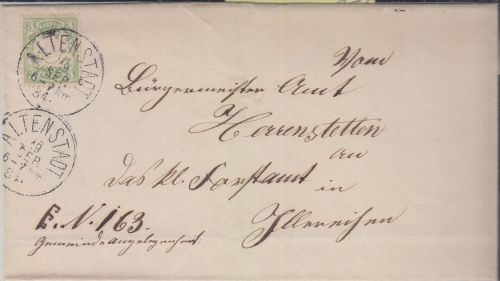 3
ALTENSTADT
SEP
84
ALTENSTADT
SEP
Vom
Bürgermeister Amt
Herrenstetten
an
das kl. Forstamt in
Illereichen
E. N. 163.
Gemeindeangelegenheit